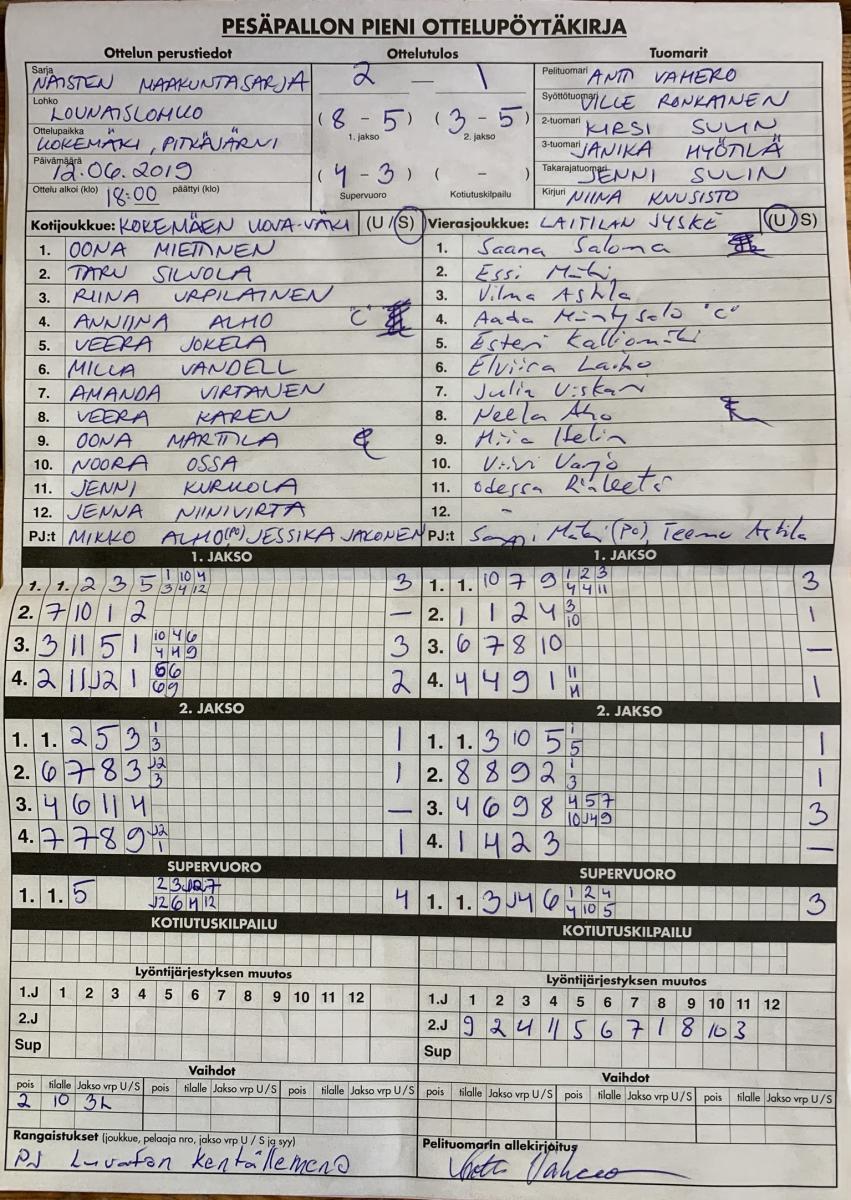 PESÄPALLON PIENI OTTELUPÖYTÄKIRJA
Ottelun perustiedot Ottelutulos Tuomarit
Sarja NAISTEN MAAKUNTASARJA
Lohko LOUNAISLOHKO
Ottelupaikka KOKEMÄKI, PITKÄJÄRVI
Päivämäärä 12.06.2019
Ottelu alkoi (klo) 18:00 päättyi (klo)
2 – 1
(8 - 5) (3 - 5)
1. jakso 2. jakso
(4 - 3) ( - )
Supervuoro Kotiutuskilpailu
Pelituomari ANTI VAHERO
Syöttötuomari VILLE RONKAINEN
2-tuomari KIRSI SULIN
3-tuomari JANIKA HYÖTILÄ
Takarajatuomari JENNI SULIN
Kirjuri NIINA KNUSISTO
Kotijoukkue: KOKEMÄEN KOVA-VÄKI (U / S)
1. OONA MIETTINEN
2. TARU SILVOLA
3. RIINA URPILAINEN
4. ANNIINA ALHO "C"
5. VEERA JOKELA
6. MILLA VANDELL
7. AMANDA VIRTANEN
8. VEERA KAREN
9. OONA MARTTILA
10. NOORA OSSA
11. JENNI KURKOLA
12. JENNA NIINIVIRTA
PJ:t MIKKO ALHO (PO) JESSIKA JAKONEN
Vierasjoukkue: LAITILAN JYSKE (U / S)
1. Saana Saloma
2. Essi Mäki
3. Vilma Astila
4. Aada Mäntysalo "C"
5. Esteri Kalliomäki
6. Elviira Laiho
7. Julia Viskari
8. Neela Aho
9. Miia Helin
10. Viivi Varjo
11. Odessa
12. -
PJ:t Mäki (PO), Teemu Astila
1. JAKSO
1. 1. 2 3 5 1 10 4 3
3 4 12
2. 7 10 1 2 —
3. 3 11 5 1 10 4 6 3
4 11 9
4. 2 11 J2 1 5 6 2
6 9
1. JAKSO
1. 1. 10 7 9 1 2 3 3
4 4 11
2. 1 1 2 4 3 1
10
3. 6 7 8 10 —
4. 4 4 9 1 11 1
2. JAKSO
1. 1. 2 5 3 1 1
3
2. 6 7 8 3 J2 1
3
3. 4 6 11 4 —
4. 7 7 8 9 J2 1
1
2. JAKSO
1. 1. 3 10 5 1 1
5
2. 8 8 9 2 1 1
3
3. 4 6 9 8 4 5 7 3
10 J4 9
4. 1 4 2 3 —
SUPERVUORO
1. 1. 5 2 3 J2 7 4
J2 6 11 12
SUPERVUORO
1. 1. 3 J4 6 1 2 4 3
4 10 5
KOTIUTUSKILPAILU
KOTIUTUSKILPAILU
Lyöntijärjestyksen muutos
1.J 1 2 3 4 5 6 7 8 9 10 11 12
2.J
Sup
Lyöntijärjestyksen muutos
1.J 1 2 3 4 5 6 7 8 9 10 11 12
2.J 9 2 4 11 5 6 7 1 8 10 3
Sup
Vaihdot
pois tilalle Jakso vrp U / S pois tilalle Jakso vrp U / S pois tilalle Jakso vrp U / S
2 10 3L
Vaihdot
pois tilalle Jakso vrp U / S pois tilalle Jakso vrp U / S pois tilalle Jakso vrp U / S
Rangaistukset (joukkue, pelaaja nro, jakso vrp U / S ja syy)
PJ Luvaton kentällemeno
Pelituomarin allekirjoitus